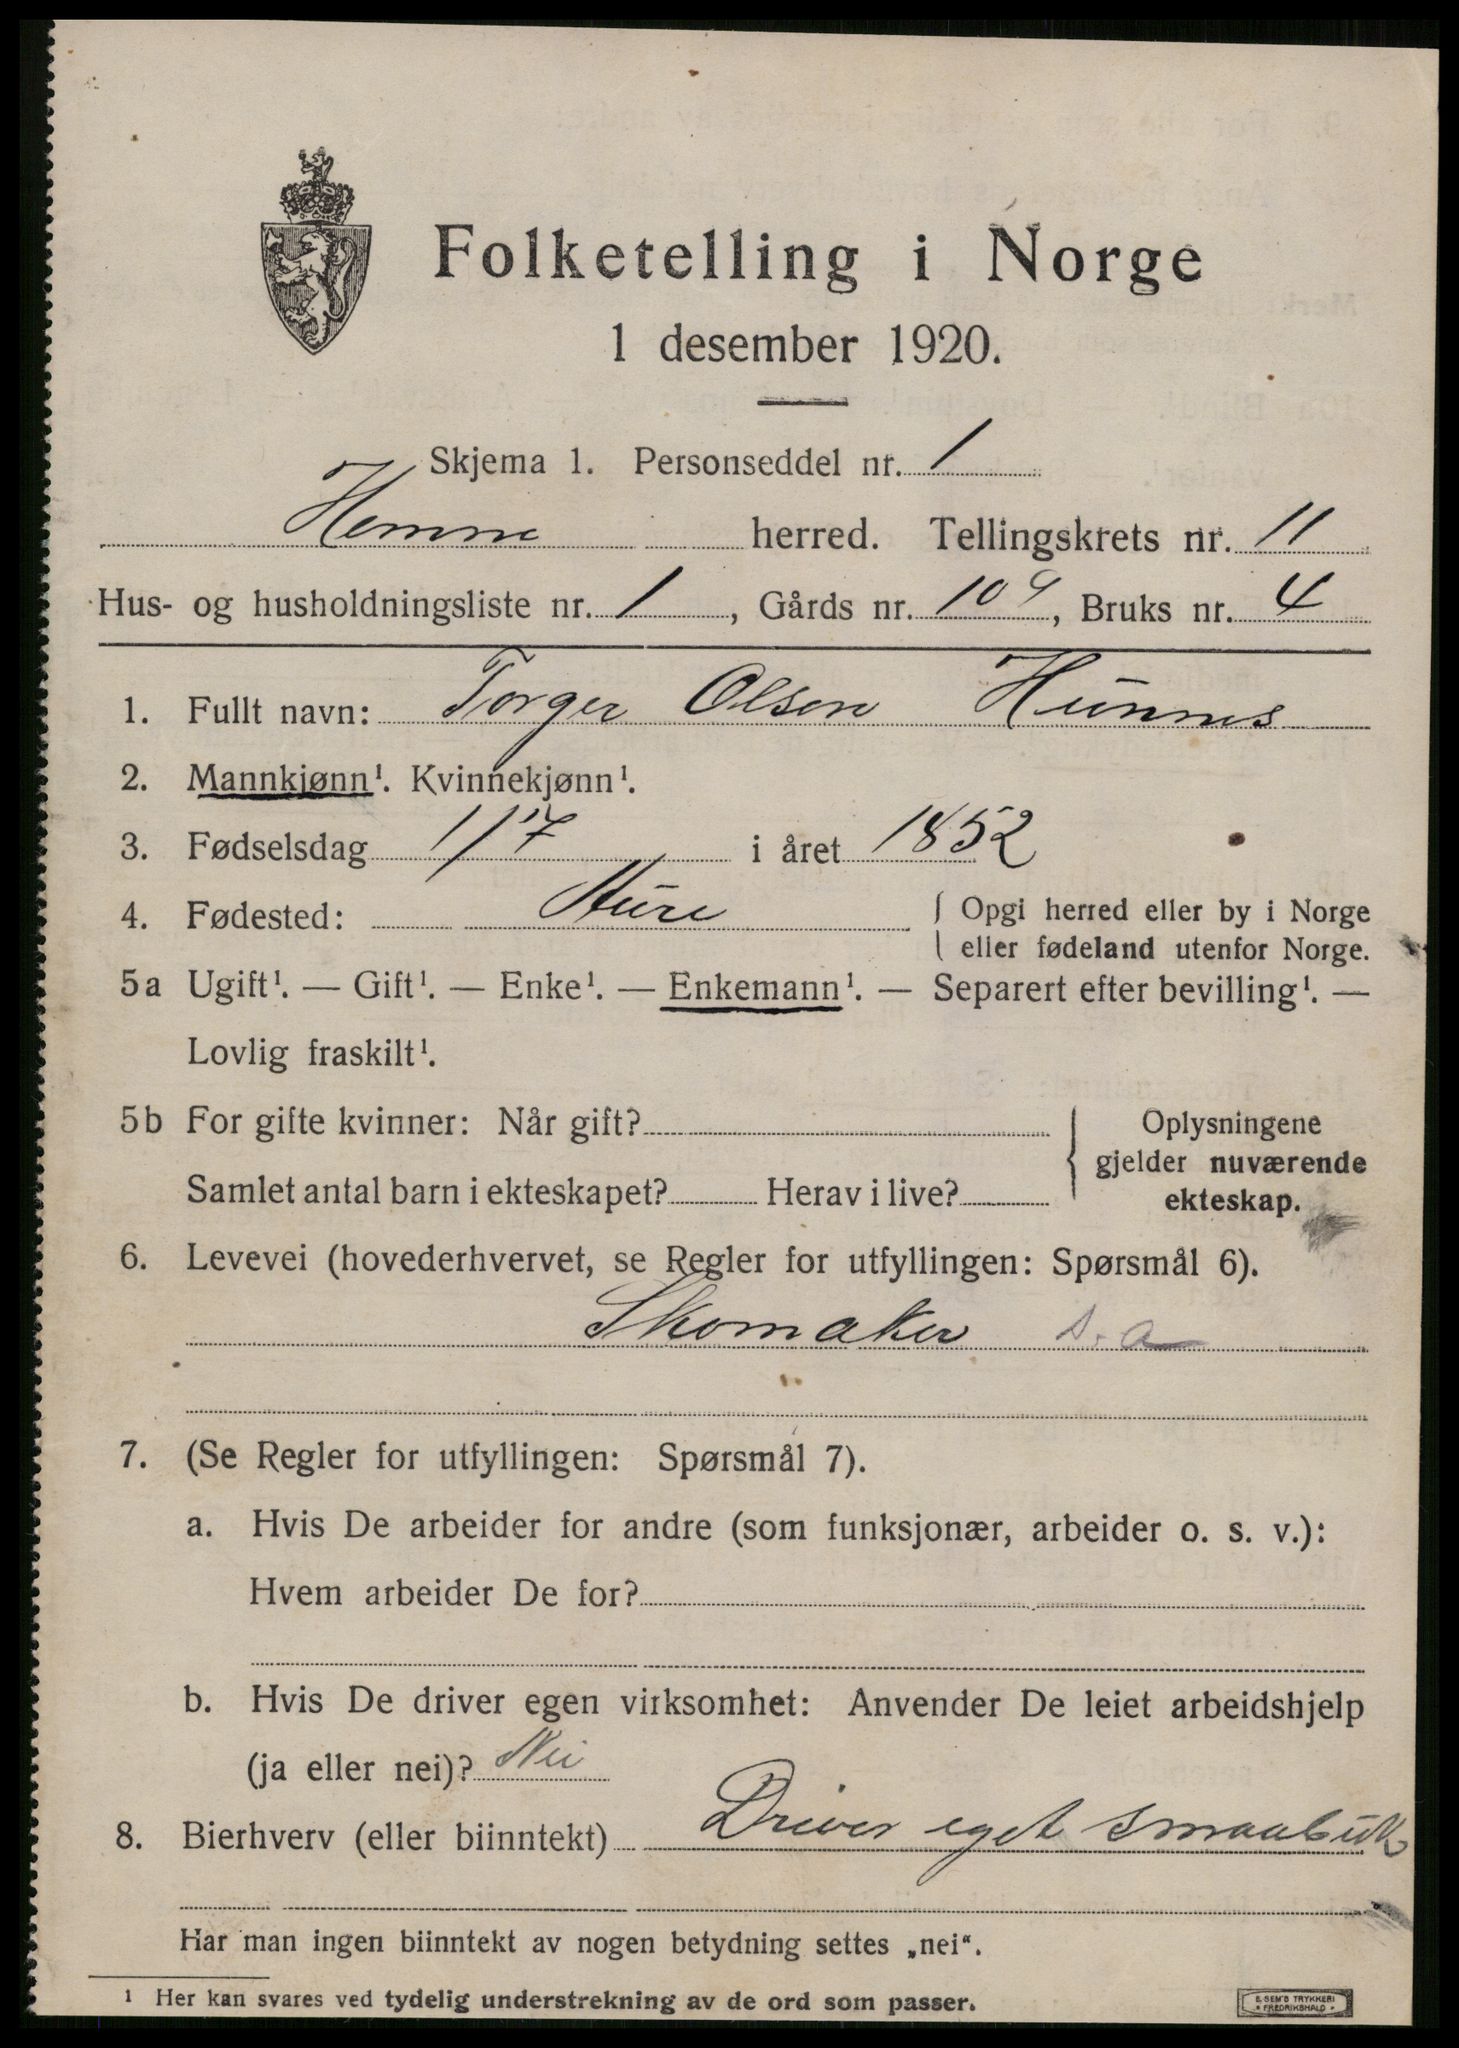 Folketelling i Norge
1 desember 1920.
Skjema 1. Personseddel nr. 1
Hemne herred. Tellingskrets nr. 11
Hus- og husholdningsliste nr. 1, Gårds nr. 109, Bruks nr. 4
1. Fullt navn: Torger Olsen Hunnes
2. Mannkjønn¹. Kvinnekjønn¹.
3. Fødselsdag 1/7 i året 1852
4. Fødested: Aure { Opgi herred eller by i Norge
eller fødeland utenfor Norge.
5a Ugift¹. — Gift¹. — Enke¹. — Enkemann¹. — Separert efter bevilling¹. —
Lovlig fraskilt¹.
5b For gifte kvinner: Når gift? { Oplysningene
gjelder nuværende
Samlet antal barn i ekteskapet? Herav i live? ekteskap.
6. Levevei (hovederhvervet, se Regler for utfyllingen: Spørsmål 6).
Skomaker s.a
7. (Se Regler for utfyllingen: Spørsmål 7).
a. Hvis De arbeider for andre (som funksjonær, arbeider o. s. v.):
Hvem arbeider De for?
b. Hvis De driver egen virksomhet: Anvender De leiet arbeidshjelp
(ja eller nei)? Nei
8. Bierhverv (eller biinntekt) Driver eget
Har man ingen biinntekt av nogen betydning settes „nei“.
¹ Her kan svares ved tydelig understrekning av de ord som passer.
E. SEM'S TRYKKERI
FREDRIKSHALD